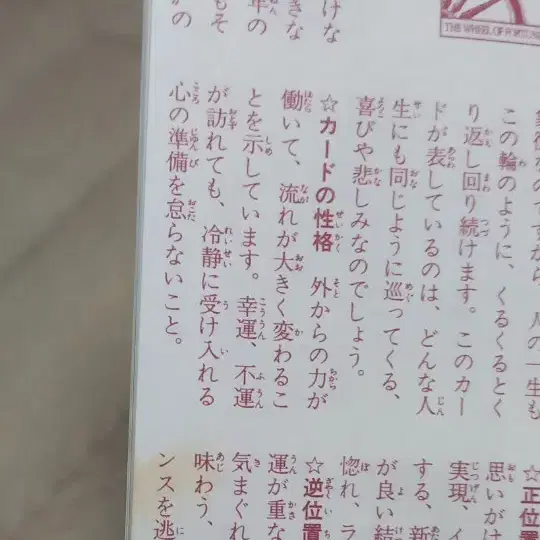 THE WHEEL OF FORTUNE
けな
きな
年の
もそ
の
この輪のように、くるくるとく
り返し回り続けます。このカー
ドが表しているのは、どんな人
生にも同じように巡ってくる、
喜びや悲しみなのでしょう。
☆カードの性格　外からの力が
働いて、流れが大きく変わるこ
とを示しています。幸運、不運
が訪れても、冷静に受け入れる
心の準備を怠らないこと。
☆正位置
思いがけ
実現、イ
する、新
が良い結
惚れ、ラ
☆逆位置
運が重な
気まぐれ
味わう、
ンスを逃